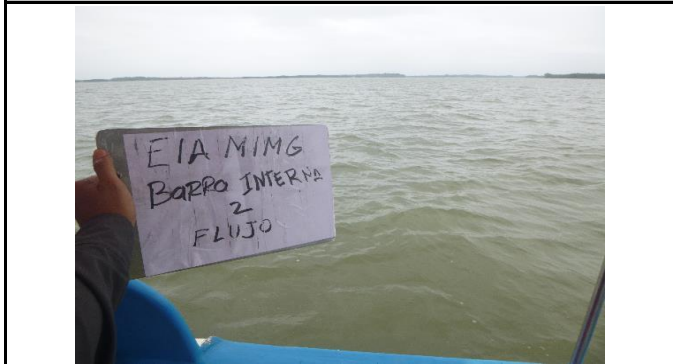 EIA MIMG
BARRO INTERNA
2
FLUJO